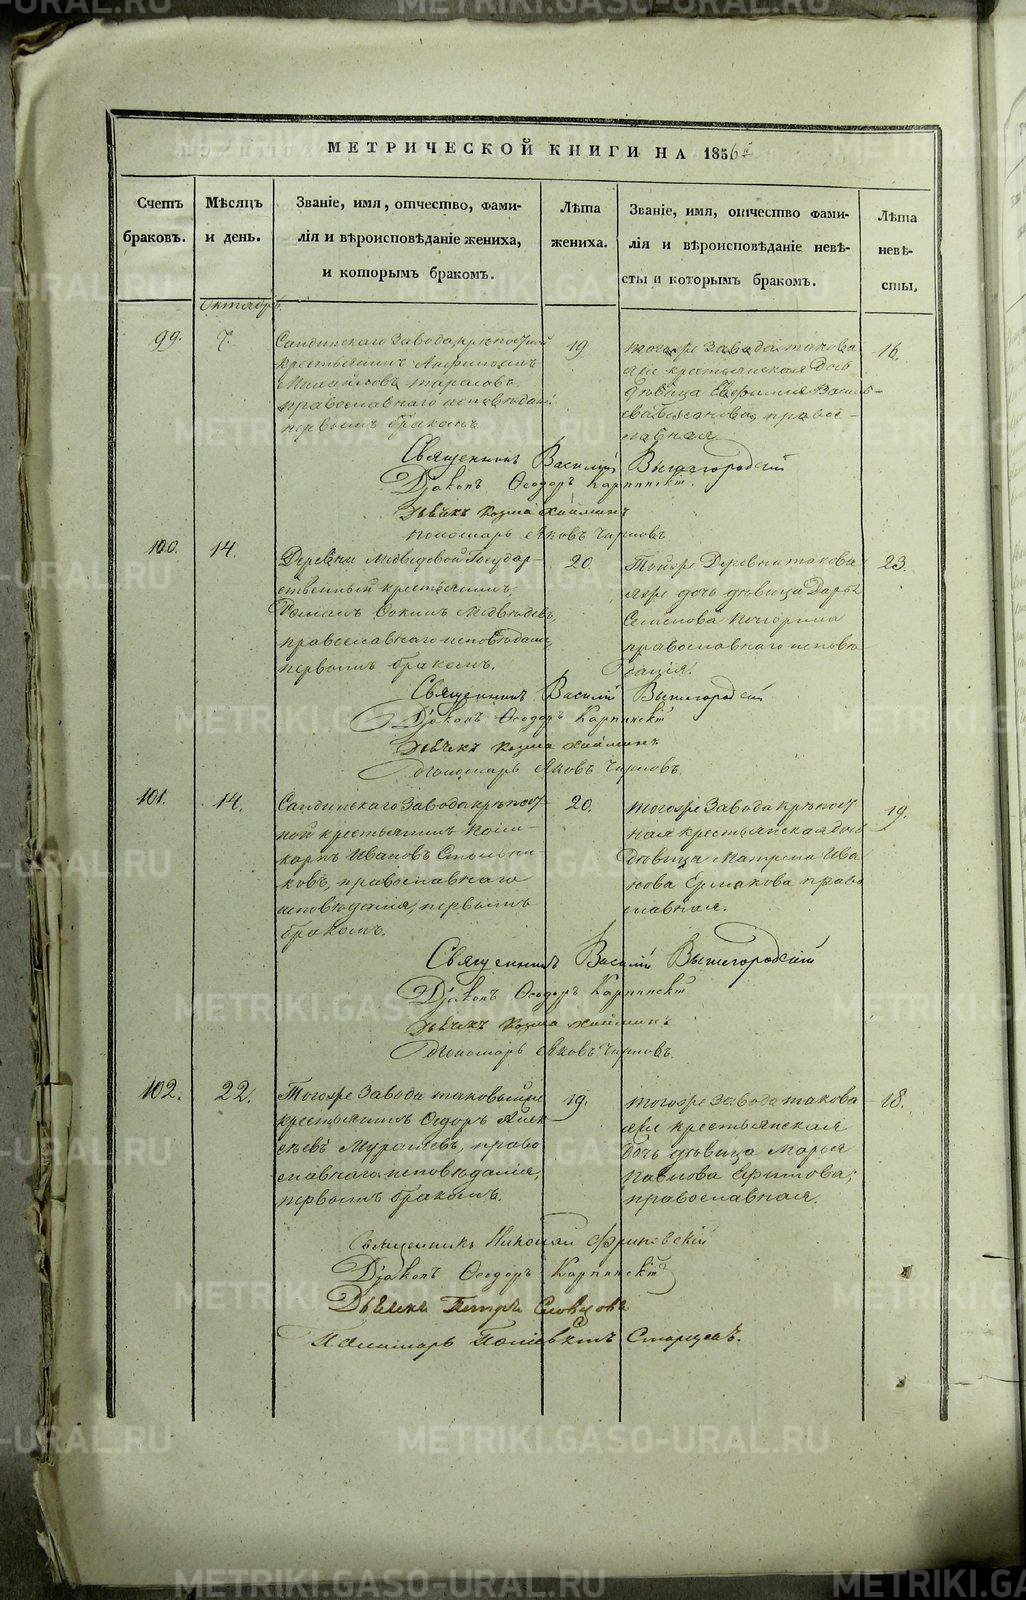 МЕТРИЧЕСКОЙ КНИГИ НА 1856й
Счетъ браковъ.
Мѣсяцъ и день.
Званіе, имя, отчество, фами-
лія и вѣроисповѣданіе жениха,
и которымъ бракомъ.
Лѣта жениха.
Званіе, имя, отчество фами-
лія и вѣроисповѣданіе невѣ-
сты и которымъ бракомъ.
Лѣта невѣ-
сты.
Октябрь.
99.
7.
Салдинскаго Завода крѣпостный
крестьянинъ
Михайловъ Тарасовъ
православнаго исповѣданія
первымъ бракомъ.
19
тогоже Завода такова
яже крестьянская дочь
дѣвица Евфимія Василь-
ева правос-
лавная
16.
Священникъ Василій Вышегородскій
Діаконъ Ѳеодоръ Карпинскій.
Дьячекъ Козма
пономарь Яковъ Чирковъ.
100.
14.
Деревни Медвѣдевой Государ-
ственный крестьянинъ
Романъ Медвѣдевъ,
православнаго исповѣданія,
первымъ бракомъ.
20.
Тойже Деревни такова
яже дочь дѣвица Дарья
Семенова
православнаго исповѣ-
данія.
23.
Священникъ Василій Вышегородскій
Діаконъ Ѳеодоръ Карпинскій
Дьячекъ Козма
Пономарь Яковъ Чирковъ.
101.
14.
Салдинскаго Завода крѣпост-
ной крестьянинъ Поли-
карпъ Ивановъ
ковъ, православнаго
исповѣданія, первымъ
бракомъ.
20.
тогоже Завода крѣпост-
ная крестьянская дочь
дѣвица Матрена Ива
нова Ермакова право
славная.
19.
Священникъ Василій Вышегородскій
Діаконъ Ѳеодоръ Карпинскій
Дьячекъ Козма
Пономарь Яковъ Чирковъ.
102.
22.
Тогоже Завода таковыйже
крестьянинъ Ѳедоръ Алек
сѣевъ Муралевъ, право
славнаго исповѣданія,
первымъ бракомъ.
19.
тогоже Завода такова
яже крестьянская
дочь дѣвица Марья
Павлова
православная.
18.
Священникъ Николай
Діаконъ Ѳеодоръ Карпинскій
Дьячекъ Петръ Словцовъ
Пономарь Старцевъ.
METRIKI.GASO-URAL.RU